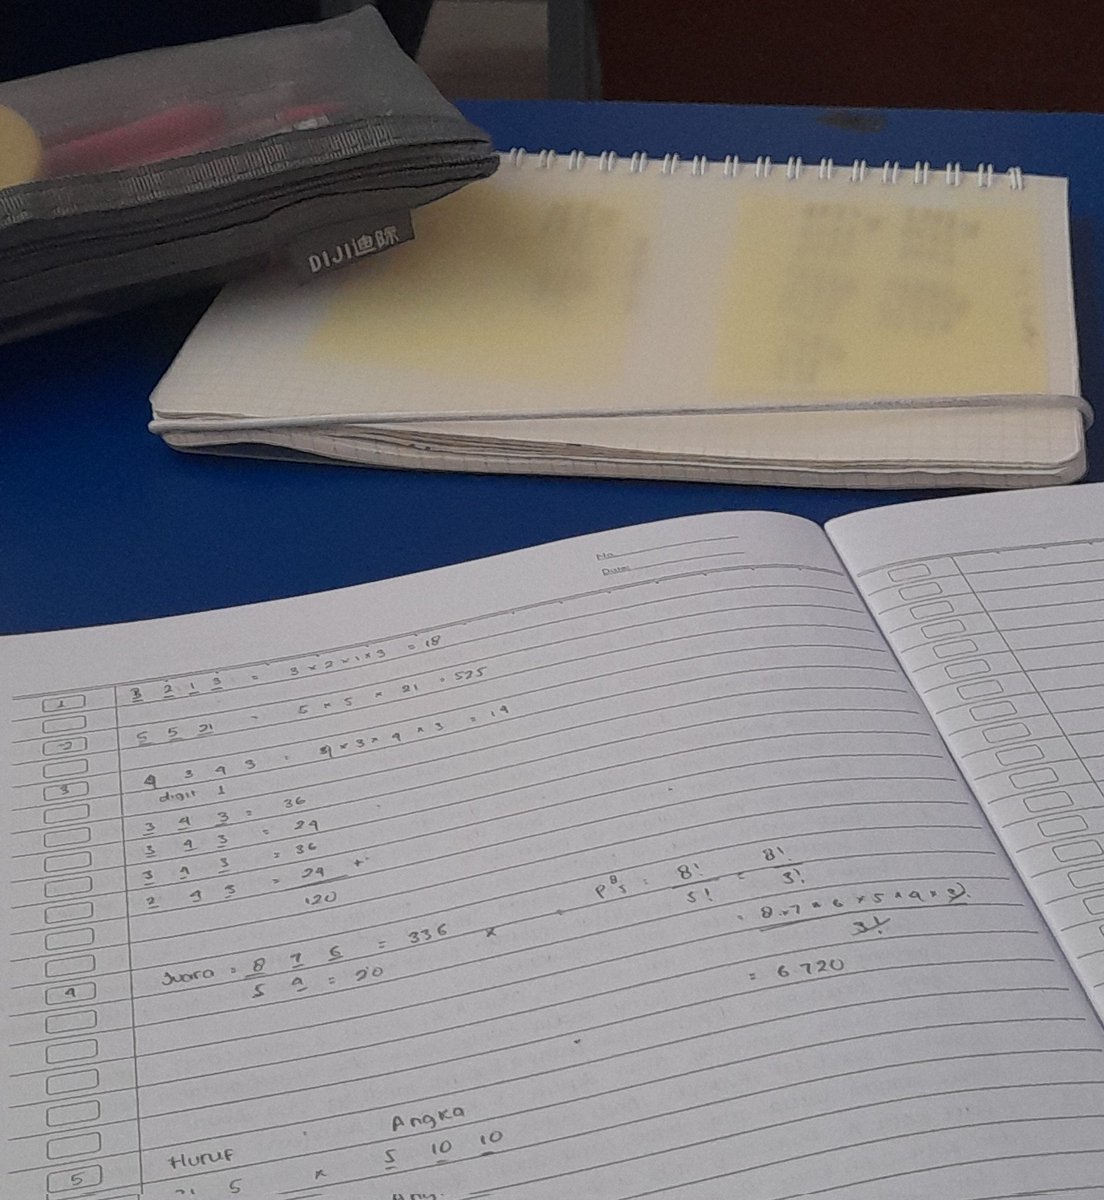 DIJI迪际
No
Date
1 3 2 1 3 = 3 × 2 × 1 × 3 = 18
2 5 5 21 = 5 × 5 × 21 = 525
3 4 3 4 3 = 4 × 3 × 4 × 3 = 14
digit 1
3 4 3 = 36
3 4 3 = 24
3 4 3 = 36
2 4 3 = 24 +
120
4 Juara = 8 7 6 = 336 ×
5 4 = 20
P⁸₅ = 8! / 5! = 8! / 3!
= 8 × 7 × 6 × 5 × 4 × 3! / 3!
= 6 720
5 Huruf Angka
21 5 × 5 10 10